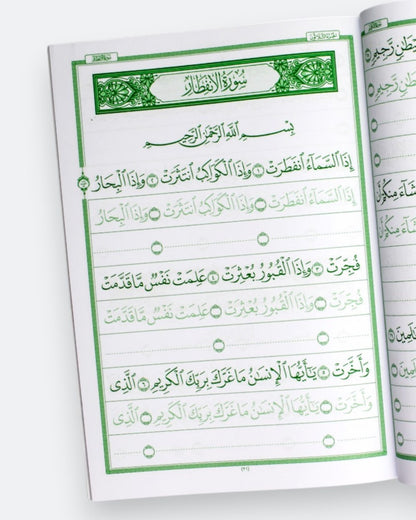 سُورَةُ الِانفِطَارِ
بِسْمِ اللَّهِ الرَّحْمَٰنِ الرَّحِيمِ
إِذَا السَّمَاءُ انفَطَرَتْ ١ وَإِذَا الْكَوَاكِبُ انتَثَرَتْ ٢ وَإِذَا الْبِحَارُ
إِذَا السَّمَاءُ انفَطَرَتْ وَإِذَا الْكَوَاكِبُ انتَثَرَتْ وَإِذَا الْبِحَارُ
فُجِّرَتْ ٣ وَإِذَا الْقُبُورُ بُعْثِرَتْ ٤ عَلِمَتْ نَفْسٌ مَّا قَدَّمَتْ
فُجِّرَتْ وَإِذَا الْقُبُورُ بُعْثِرَتْ عَلِمَتْ نَفْسٌ مَّا قَدَّمَتْ
وَأَخَّرَتْ ٥ يَا أَيُّهَا الْإِنسَانُ مَا غَرَّكَ بِرَبِّكَ الْكَرِيمِ ٦ الَّذِي
وَأَخَّرَتْ يَا أَيُّهَا الْإِنسَانُ مَا غَرَّكَ بِرَبِّكَ الْكَرِيمِ الَّذِي